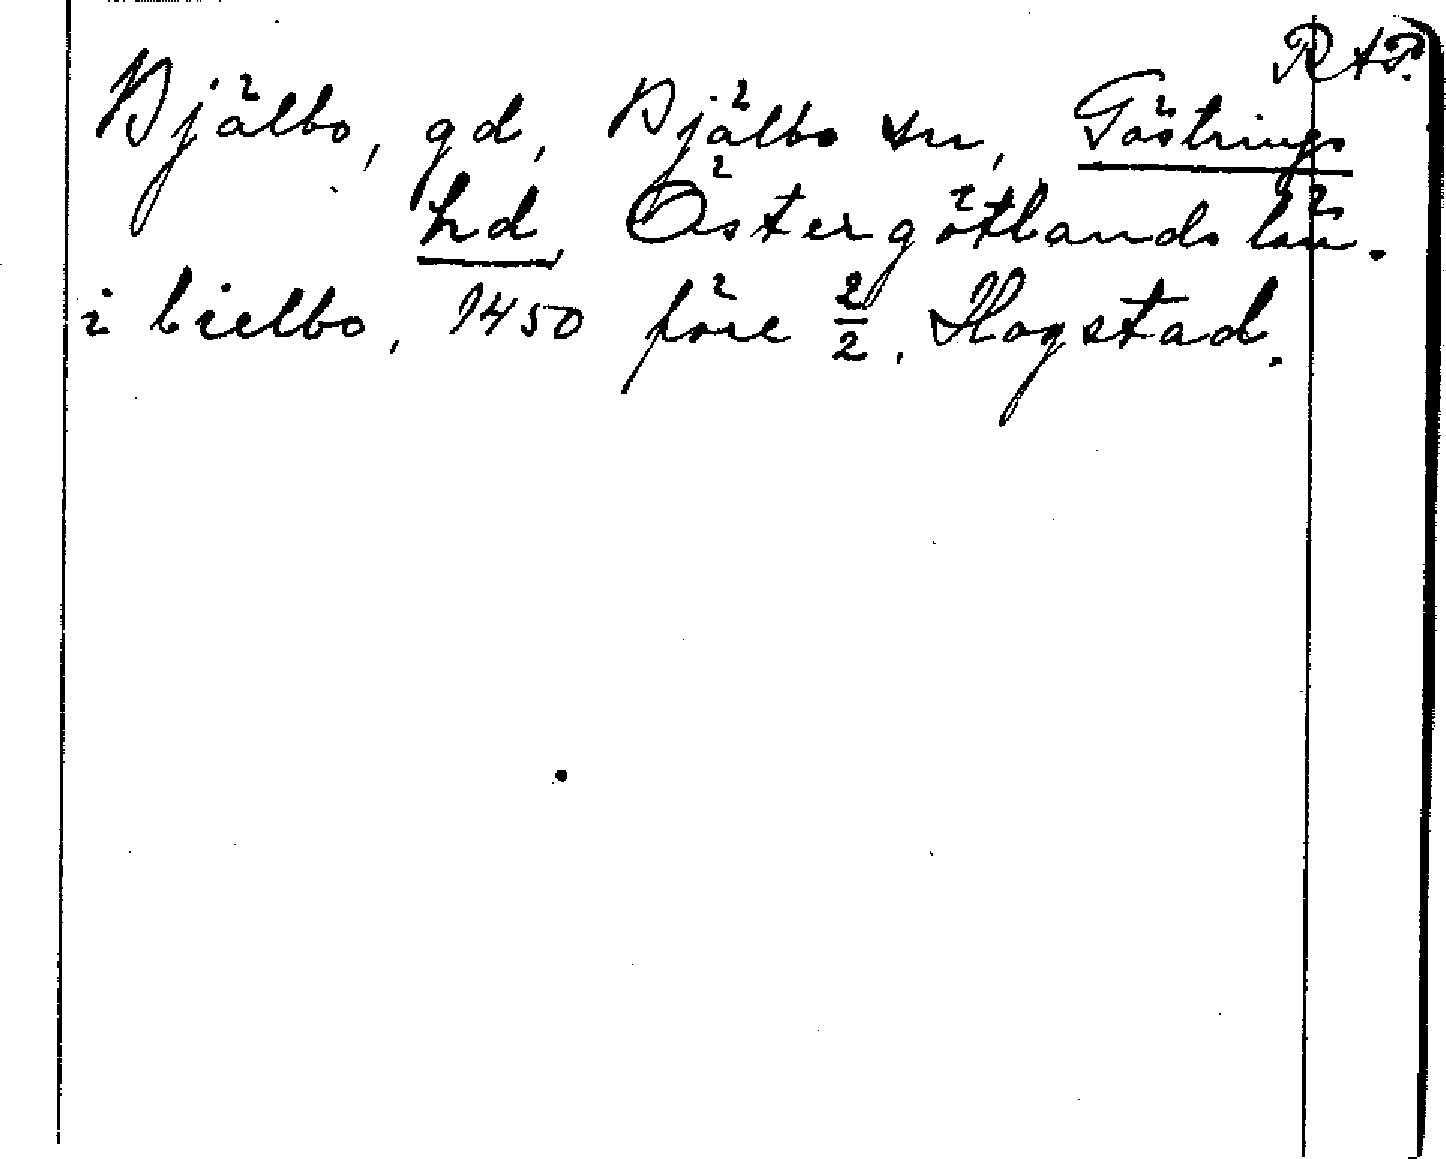 RAP.
Bjälbo, gd, Bjälbo sn, Göstrings
hd, Östergötlands län.
i bielbo, 1450 före 2/2, Hogstad.